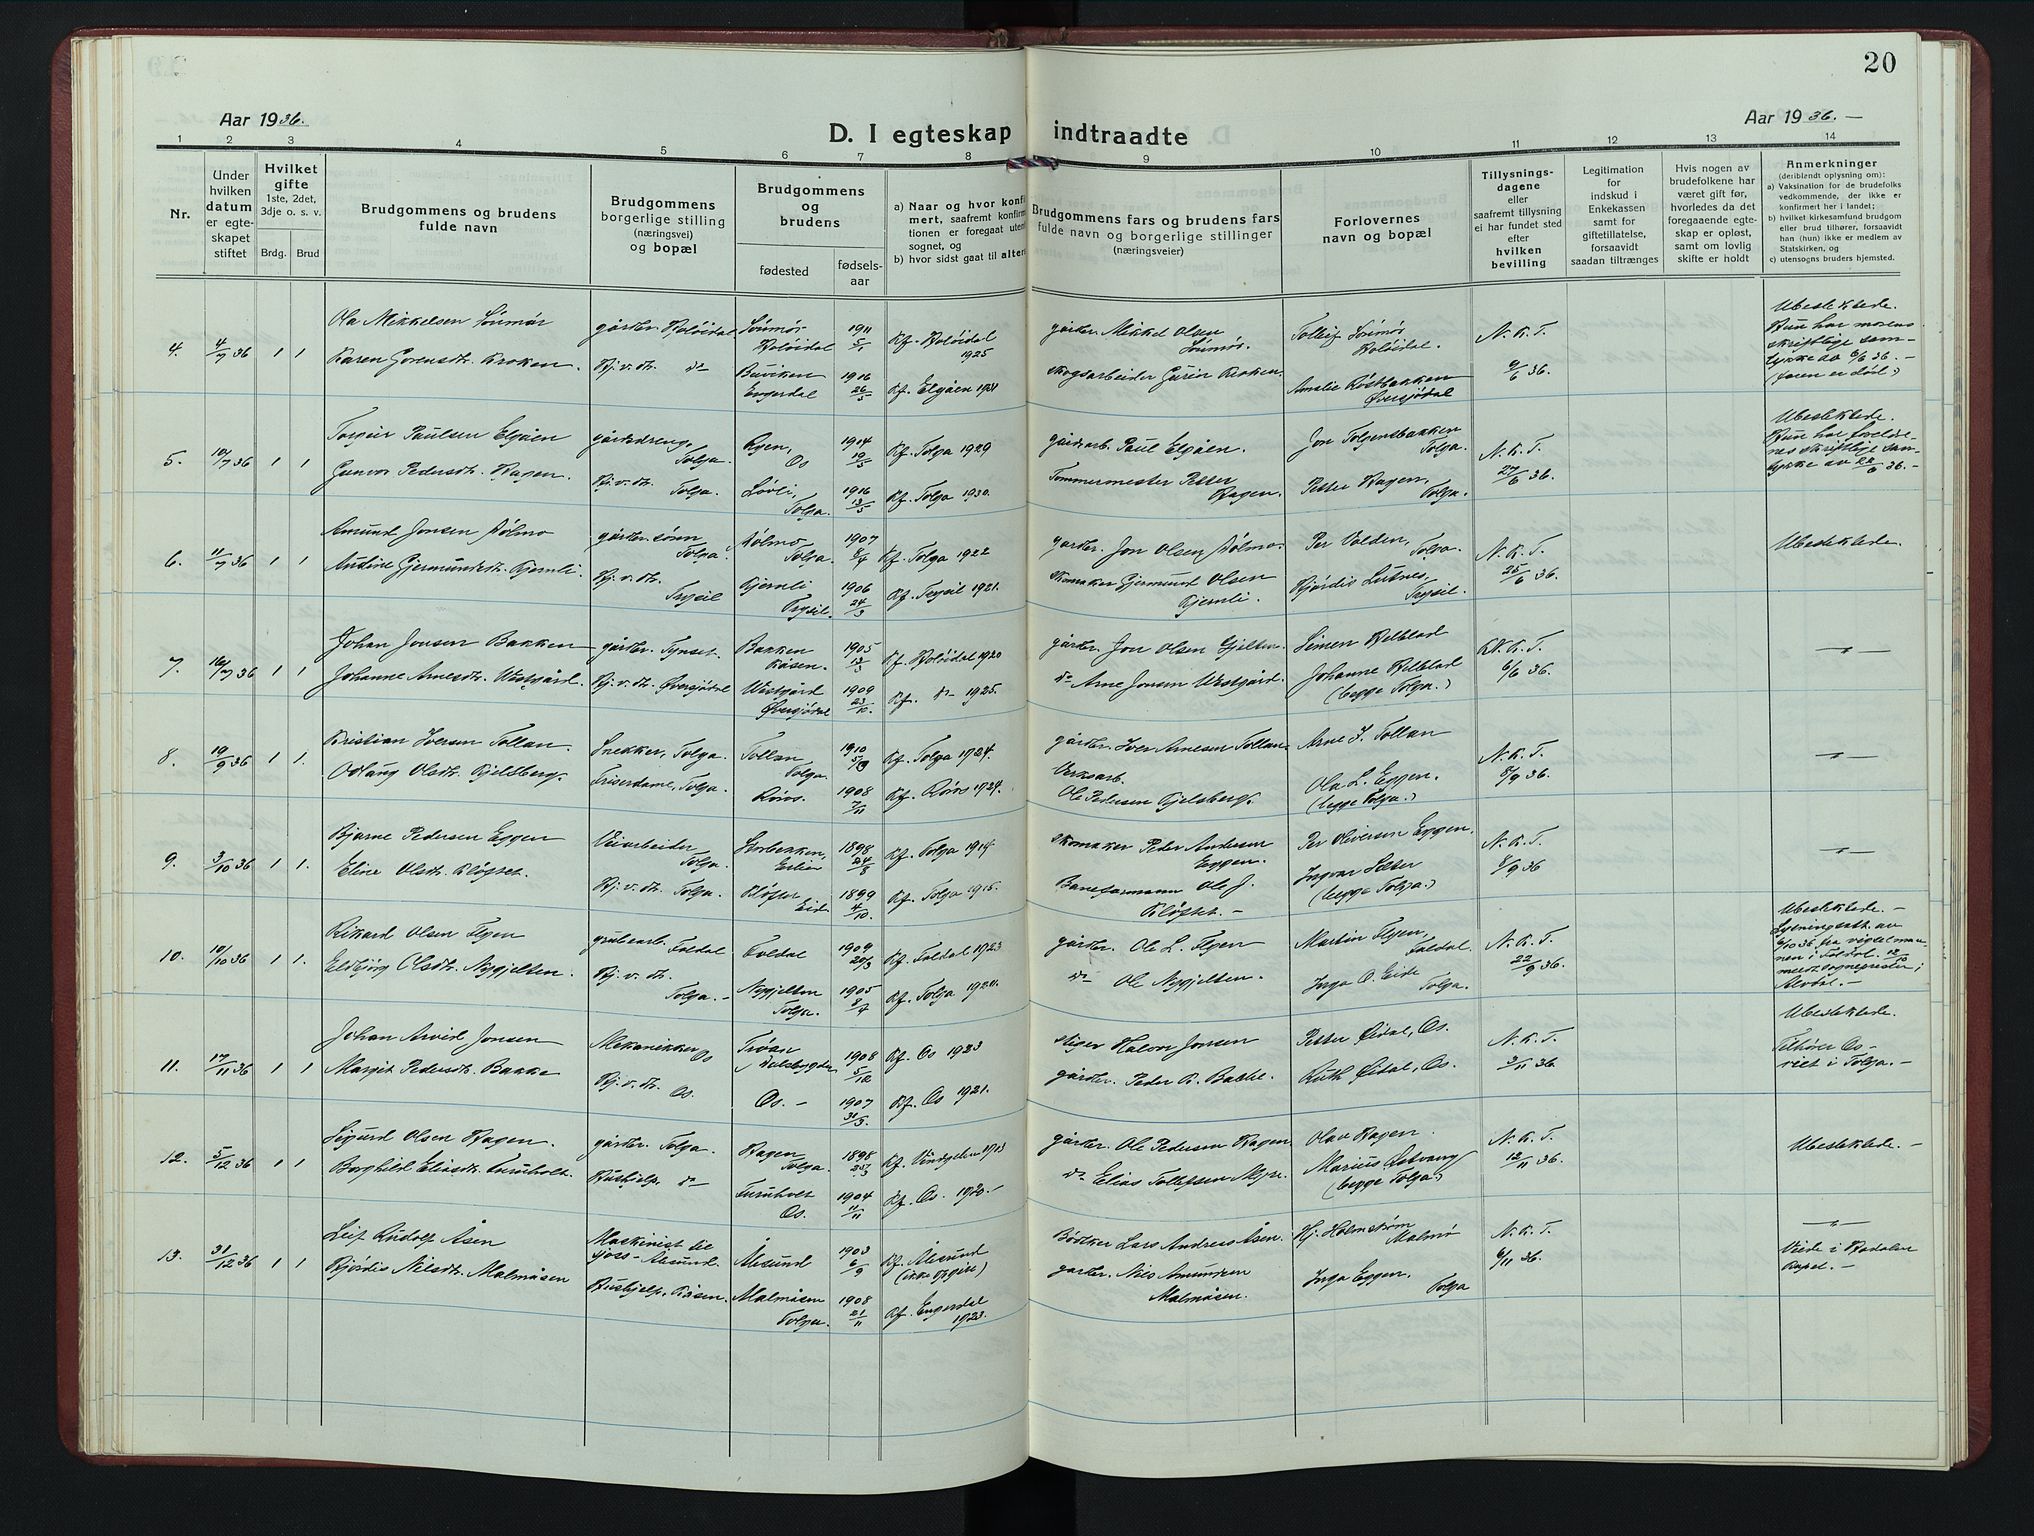 20
Aar 1936.
D. I egteskap indtraadte
Aar 1936. —
1 2 3 4 5 6 7 8 9 10 11 12 13 14
Nr.
Under
hvilken
datum
er egte-
skapet
stiftet
Hvilket
gifte
1ste, 2det,
3dje o. s. v.
Brdg. Brud
Brudgommens og brudens
fulde navn
Brudgommens
borgerlige stilling
(næringsvei)
og bopæl
Brudgommens
og
brudens
fødested
fødsels-
aar
a) Naar og hvor konfi
mert, saafremt konfirm
tionen er foregaat uten
sognet, og
b) hvor sidst gaat til alters
Brudgommens fars og brudens fars
fulde navn og borgerlige stillinger
(næringsveier)
Forlovernes
navn og bopæl
Tillysnings-
dagene
eller
saafremt tillysning
ei har fundet sted
efter
hvilken
bevilling
Legitimation
for
indskud i
Enkekassen
samt for
giftetillatelse,
forsaavidt
saadan tiltrænges
Hvis nogen av
brudefolkene har
været gift før,
hvorledes da det
foregaaende egte-
skap er opløst,
samt om lovlig
skifte er holdt
Anmerkninger
(deriblandt oplysning om):
a) Vaksination for de brudefolks
vedkommende, der ikke er
konfirmert her i landet;
b) hvilket kirkesamfund brudgom
eller brud tilhører, forsaavidt
han (hun) ikke er medlem av
Statskirken, og
c) utensogns bruders hjemsted.
4. 4/7 36 1 1
Ola Mikkelsen Sømør
Karen Gorensdtr. Kroken.
gårdbr. Holøidal
Hj.v.dtr. do
Sømør
Holøidal
Buviken
Engerdal
1911
5/1
1916
26/5
Kf. Holøidal
1925
Kf. Elgåen 1931
gårdbr. Mikkel Olsen
Sømør.
skogsarbeider Kroken.
Tolleif Sømør
Holøidal.
Amalie Røstbakken
Øversjødal
N. K. T.
9/6 36.
Ubeslektede.
Hun har morens
skriftlige sam-
tykke av 6/6 36. —
(faren er død)
5. 10/7 36 1 1
Torgeir Paulsen Elgåen
Gunvor Pedersdtr. Hagen.
gårdsdreng,
Tolga.
Hj.v.dtr.
Tolga.
Rgen,
Os
Løvli,
Tolga.
1904
19/5
1916
13/5
Kf. Tolga 1929
Kf. Tolga 1930.
gårdsarb. Paul Elgåen.
Tømmermester Petter
Hagen.
Jon Tolgensbakken
Tolga.
Petter Hagen,
Tolga.
N. K. T.
27/6 36.
Ubeslektede.
Hun har foreldre-
nes skriftlige sam-
tykke av 22/6 36. —
6. 11/7 36 1 1
Amund Jonsen Hølmo
Gjermundsdtr. Kjernli.
gårdbr. sønn
Tolga.
Hj.v.dtr.
Trysil
Hølmo
Tolga.
Kjernli
Trysil.
1907
8/4
1906
24/3
Kf. Tolga 1922
Kf. Trysil 1921.
gårdbr. Jon Olsen Hølmo.
Skomaker Gjermund Olsen
Kjernli.
Per Volden,
Tolga.
Hjørdis Lutnes,
Trysil.
N. K. T.
25/6 36.
Ubeslektede.
7. 16/7 36 1 1
Johan Jonsen Bakken
Johanne Arnesdtr. Westgård.
gårdbr. Tynset.
Hj.v.dtr. Øversjødal
Bakken
Råsen.
Westgård
Øversjødal
1905
13/3
1909
23/10.
Kf. Holøidal 1920
Kf. do 1925.
gårdbr. Jon Olsen Gjelten.
do Arne Jonsen Westgård.
Simen Helblad
Johanne Helblad
(begge Tolga.)
N. K. T.
6/6 36.
— " —
8. 19/9 36 1 1.
Kristian Iversen Tollan.
Oslaug Olsdtr. Kjelsberg.
Snekker, Tolga.
Friserdame, Tolga.
Tollan,
Tolga.
Røros.
1910
5/10
1908
7/11
Kf. Tolga 1924.
Kf. Røros 1924.
gårdbr. Iver Arnesen Tollan.
Verksarb.
Ole Pedersen Kjelsberg.
Arne I. Tollan
Ola L. Eggen.
(begge Tolga.)
N. K. T.
8/9 36.
— " —
9. 3/10 36 1 1.
Bjarne Pedersen Eggen
Eline Olsdtr. Kløftet.
Veiarbeider
Tolga.
Hj.v.dtr. Tolga.
Kløften
Eid
1898
24/8
1899
4/10.
Kf. Tolga 1914
Kf. Tolga 1915.
Skomaker Peder Andersen
Eggen.
Baneformann Ole J.
Kløftet. —
Per Oliversen Eggen.
Ingvar Sæter
(begge Tolga.)
N. K. T.
8/9 36
— " —
10. 10/10 36 1 1.
Rikard Olsen Flyen
Eldbjørg Olsdtr. Nygjelten.
grubearb.
Foldal
Hj.v.dtr.
Tolga. —
Foldal
Nygjelten
Tolga.
1909
20/3
1905
8/4
Kf. Foldal 1923
Kf. Tolga 1920.
gårdbr. Ole L. Flyen
do Ole Nygjelten.
Martin Flyen,
Foldal.
Inga O. Eide
Tolga.
N. K. T.
22/9 36.
Ubeslektede. —
Lysningsatt. av
6/10 36 fra vigselman-
nen i Foldal.
sogneprest i
Alvdal. —
11. 17/11 36 1 1
Johan Arvid Jonsen
Margit Pedersdtr. Bakke
Mekanikker
Os
Hj.v.dtr.
Os.
Trøan
Dalsbygden
Os. —
1908
5/12
1907
31/5.
Kf. Os 1923
Kf. Os 1921.
stiger Halvor Jonsen
gårdbr. Peder R. Bakke.
Petter Eidal, Os.
Ruth Eidal, Os.
N. K. T.
3/11 36
Ubeslektede.
Tilhører Os-
viet i Tolga. —
12. 5/12 36 1 1
Sigurd Olsen Hagen.
Borghild Eliasdtr. Furuholt.
gårdbr. Tolga.
Hushjelp. do
Hagen
Tolga.
Furuholt
Os.
1898
25/3
1904
11/11
Kf. Vingelen 1913
Kf. Os. 1920. —
gårdbr. Ole Pedersen Hagen.
do Elias Tollefsen Myre.
Olav Hagen.
Marius Østvang
(begge Tolga)
N. K. T.
12/11 36.
Ubeslektede. —
13. 31/12 36 1 1
Leif Rudolf Åsen
Hjørdis Nilsdtr. Malmåsen
Maskinist til
sjøss - Ålesund.
Hushjelp. Råsen.
Ålesund
Malmåsen
Tolga.
1903
6/9
1908
21/11
Kf. Ålesund
(ikke opgitt)
Kf. Engerdal
1923.
Bødker Lars Andreas Åsen.
gårdbr. Nils Amundsen
Malmåsen.
Hj. Holmstrøm
Malmø
Inga Eggen.
Tolga
N. K. T.
6/11 36.
— " —
Viede i Hodalen
Kapel. —